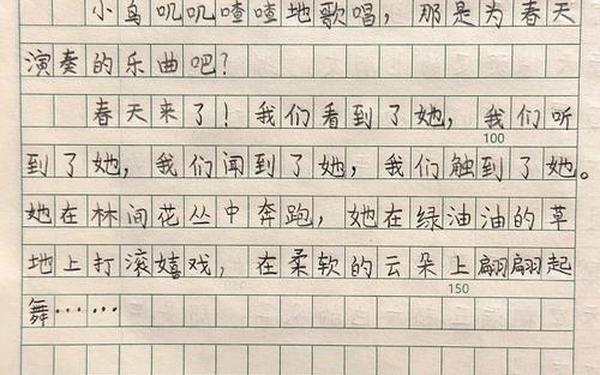 小鸟叽叽喳喳地歌唱，那是为春天
演奏的乐曲吧？
春天来了！我们看到了她，我们听
100
到了她，我们闻到了她，我们触到了她。
她在林间花丛中奔跑，她在绿油油的草
地上打滚嬉戏，在柔软的云朵上翩翩起
150
舞……